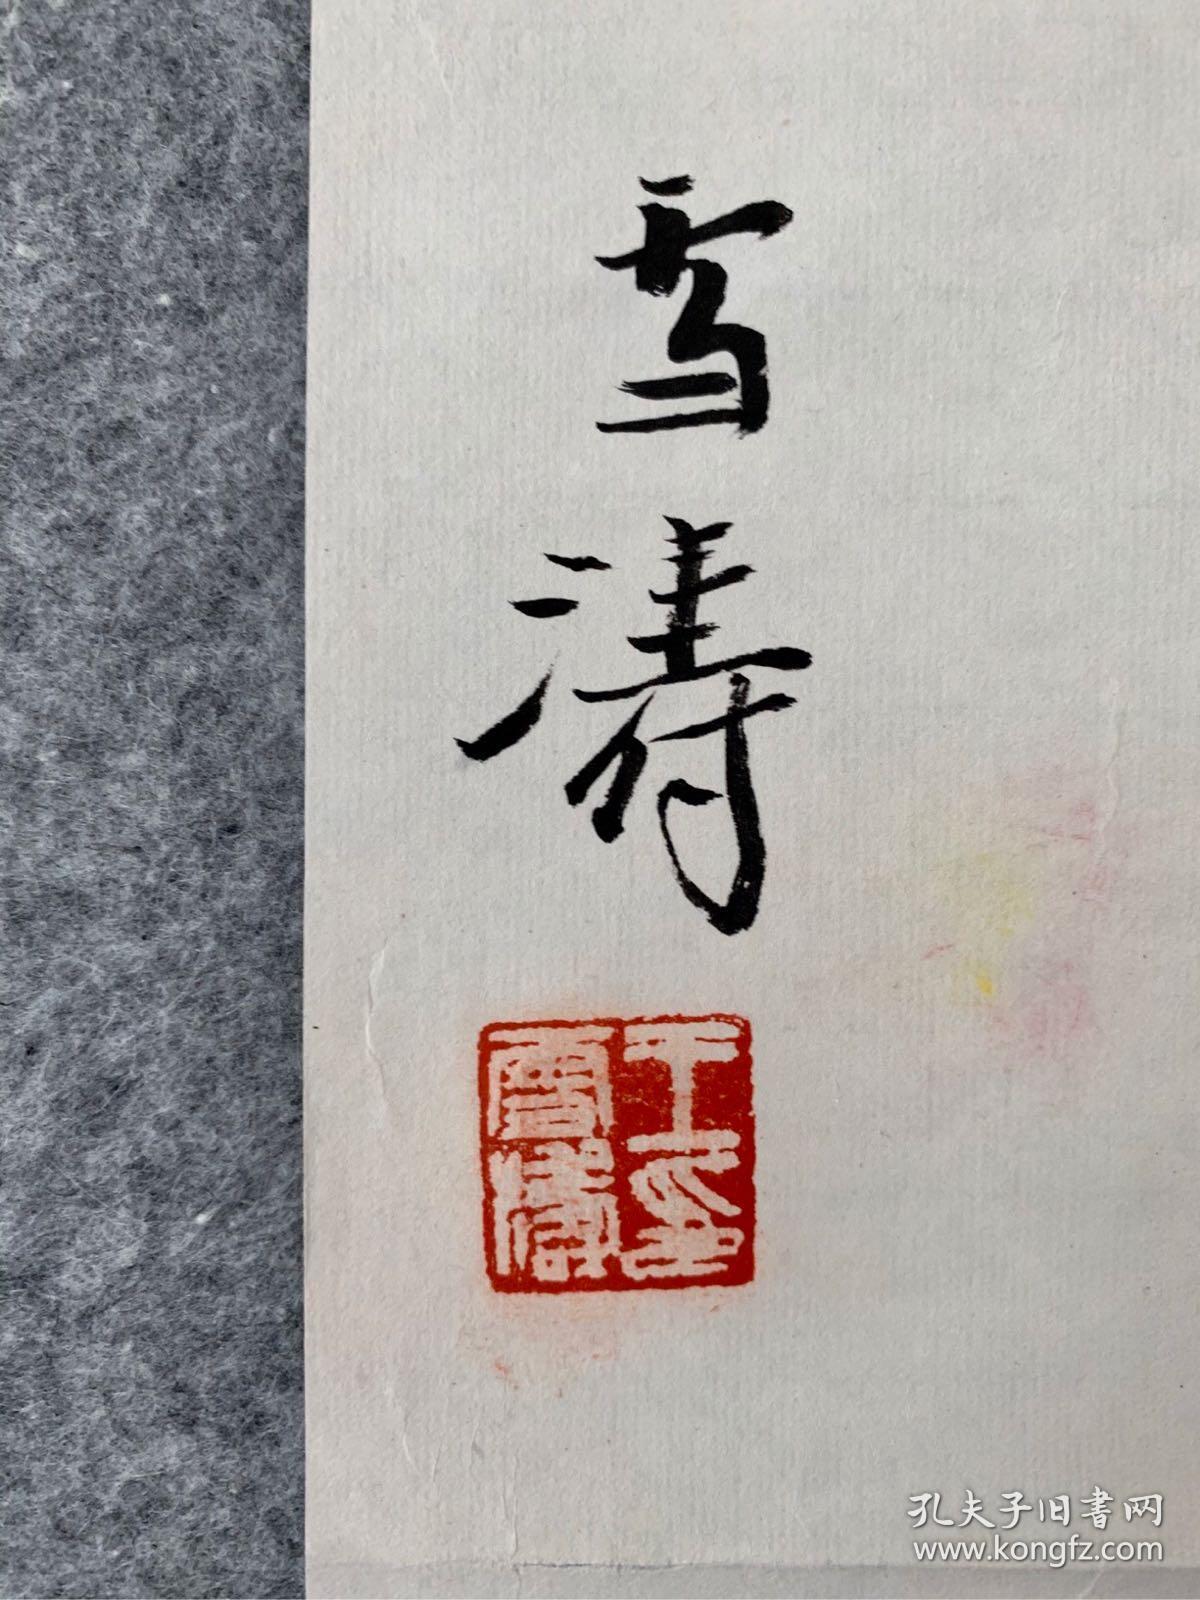 雪
濤
王印
雪濤
孔夫子旧书网
www.kongfz.com